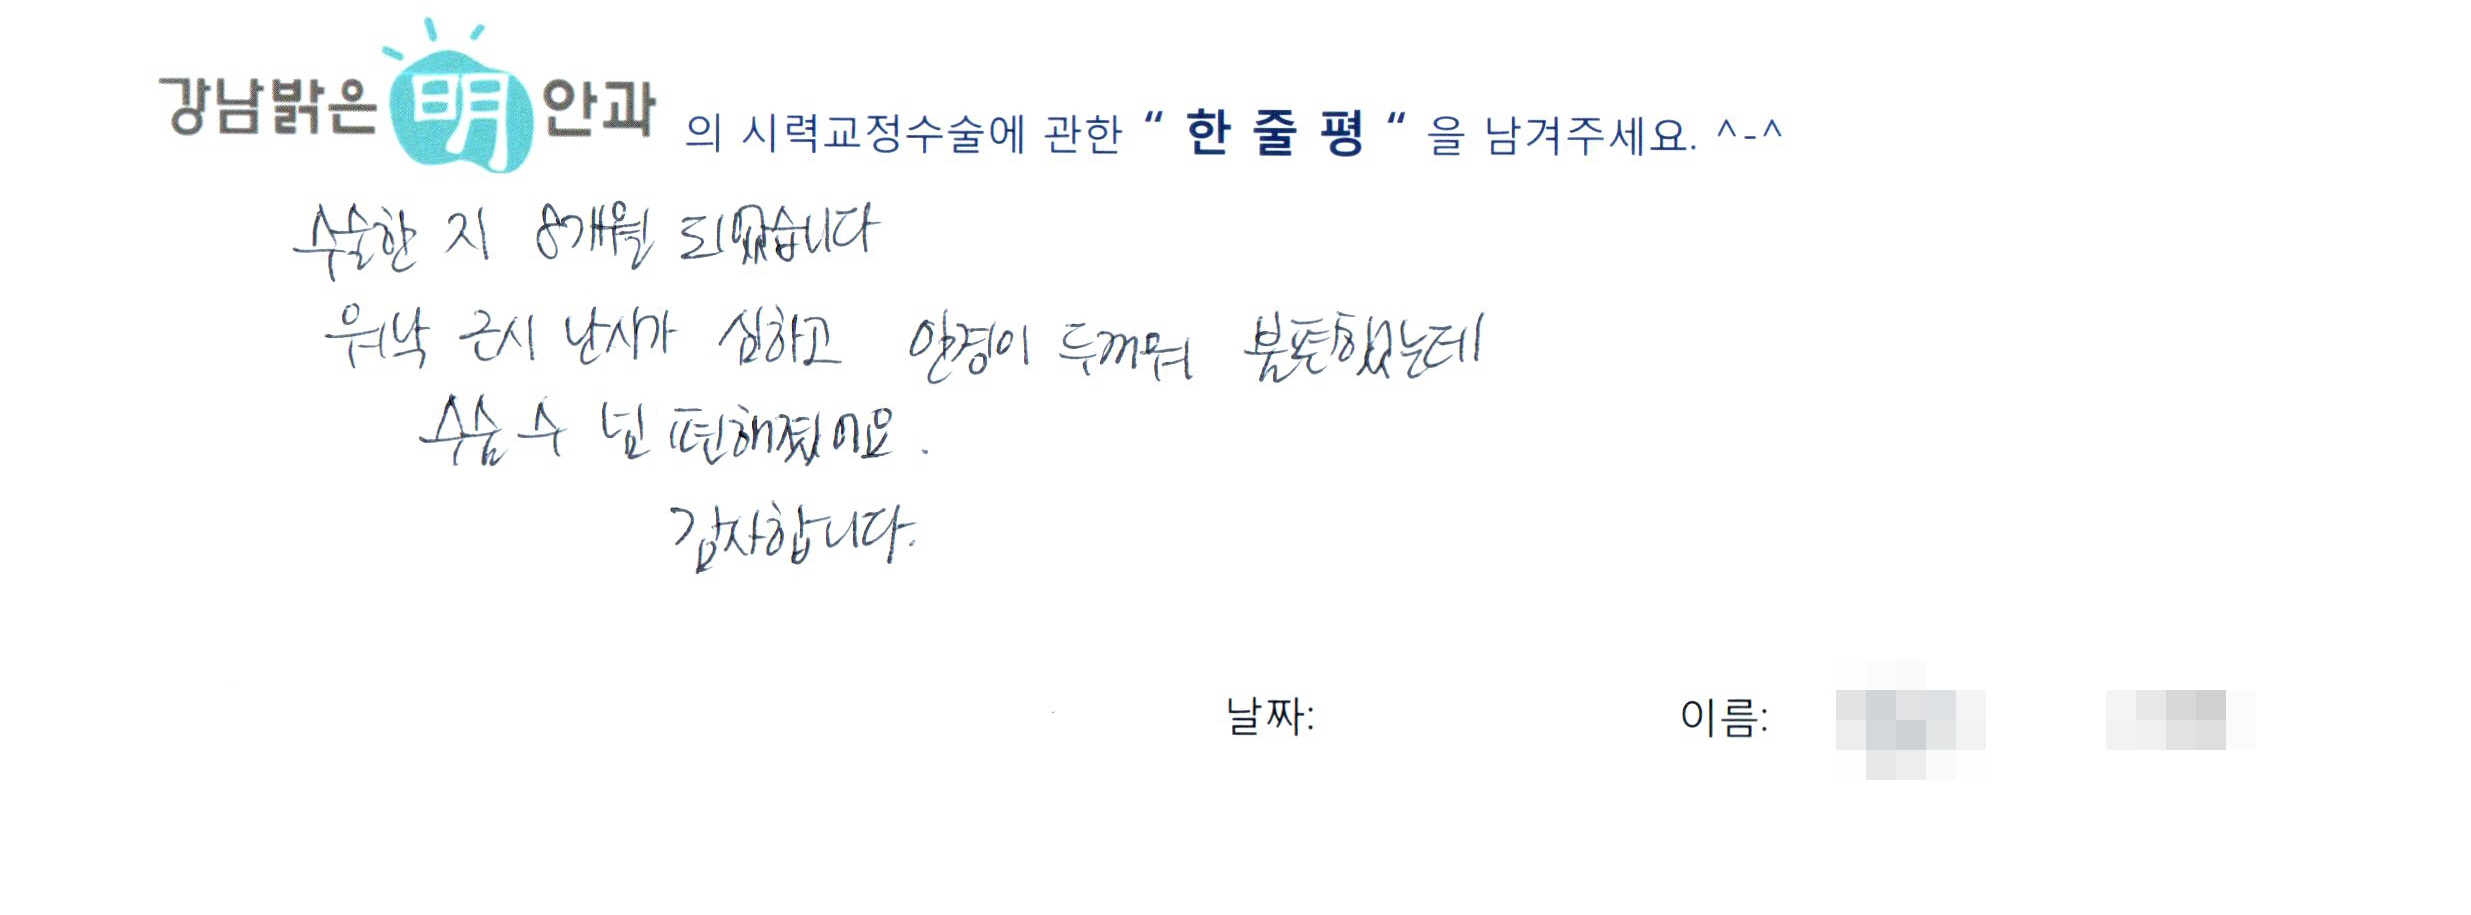 강남밝은明안과의 시력교정수술에 관한 “ 한 줄 평 “ 을 남겨주세요. ^-^
수술한 지 8개월 되었습니다
워낙 근시 난시가 심하고 안경이 두꺼워 불편했는데
수술 후 넘 편해졌어요.
감사합니다.
날짜: 이름: